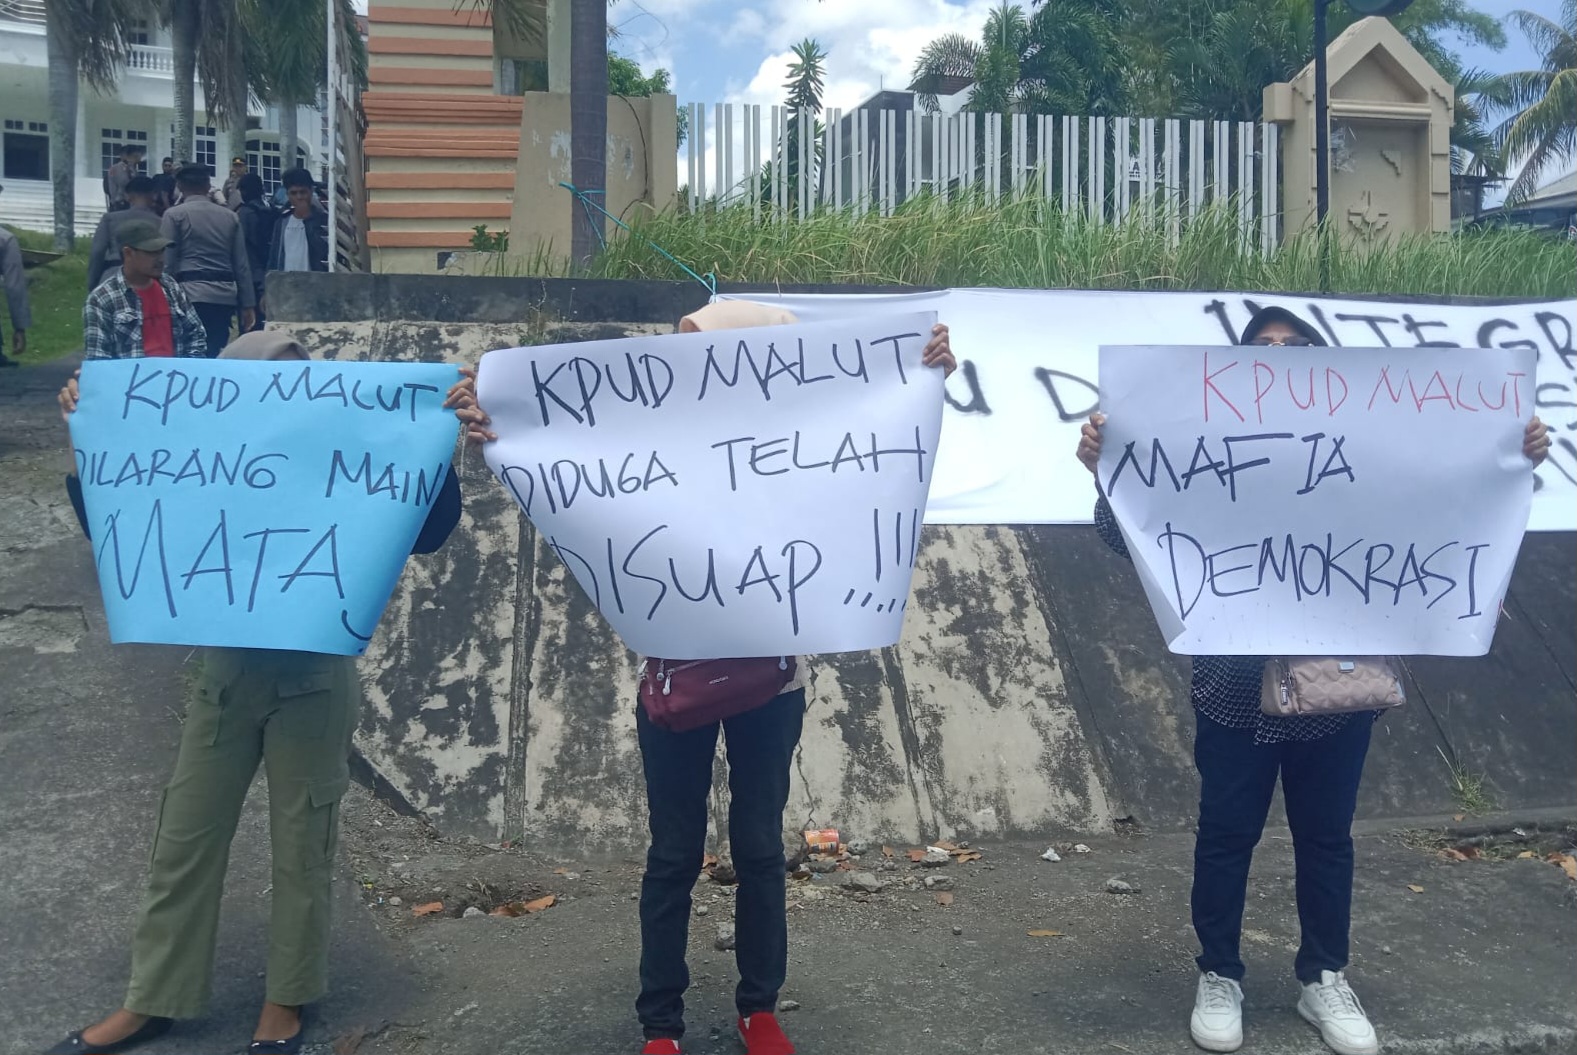 KPUD MALUT
DILARANG MAIN
MATA
KPUD MALUT
DIDUGA TELAH
DISUAP..!!!
KPUD MALUT
MAFIA
DEMOKRASI
INTEGR